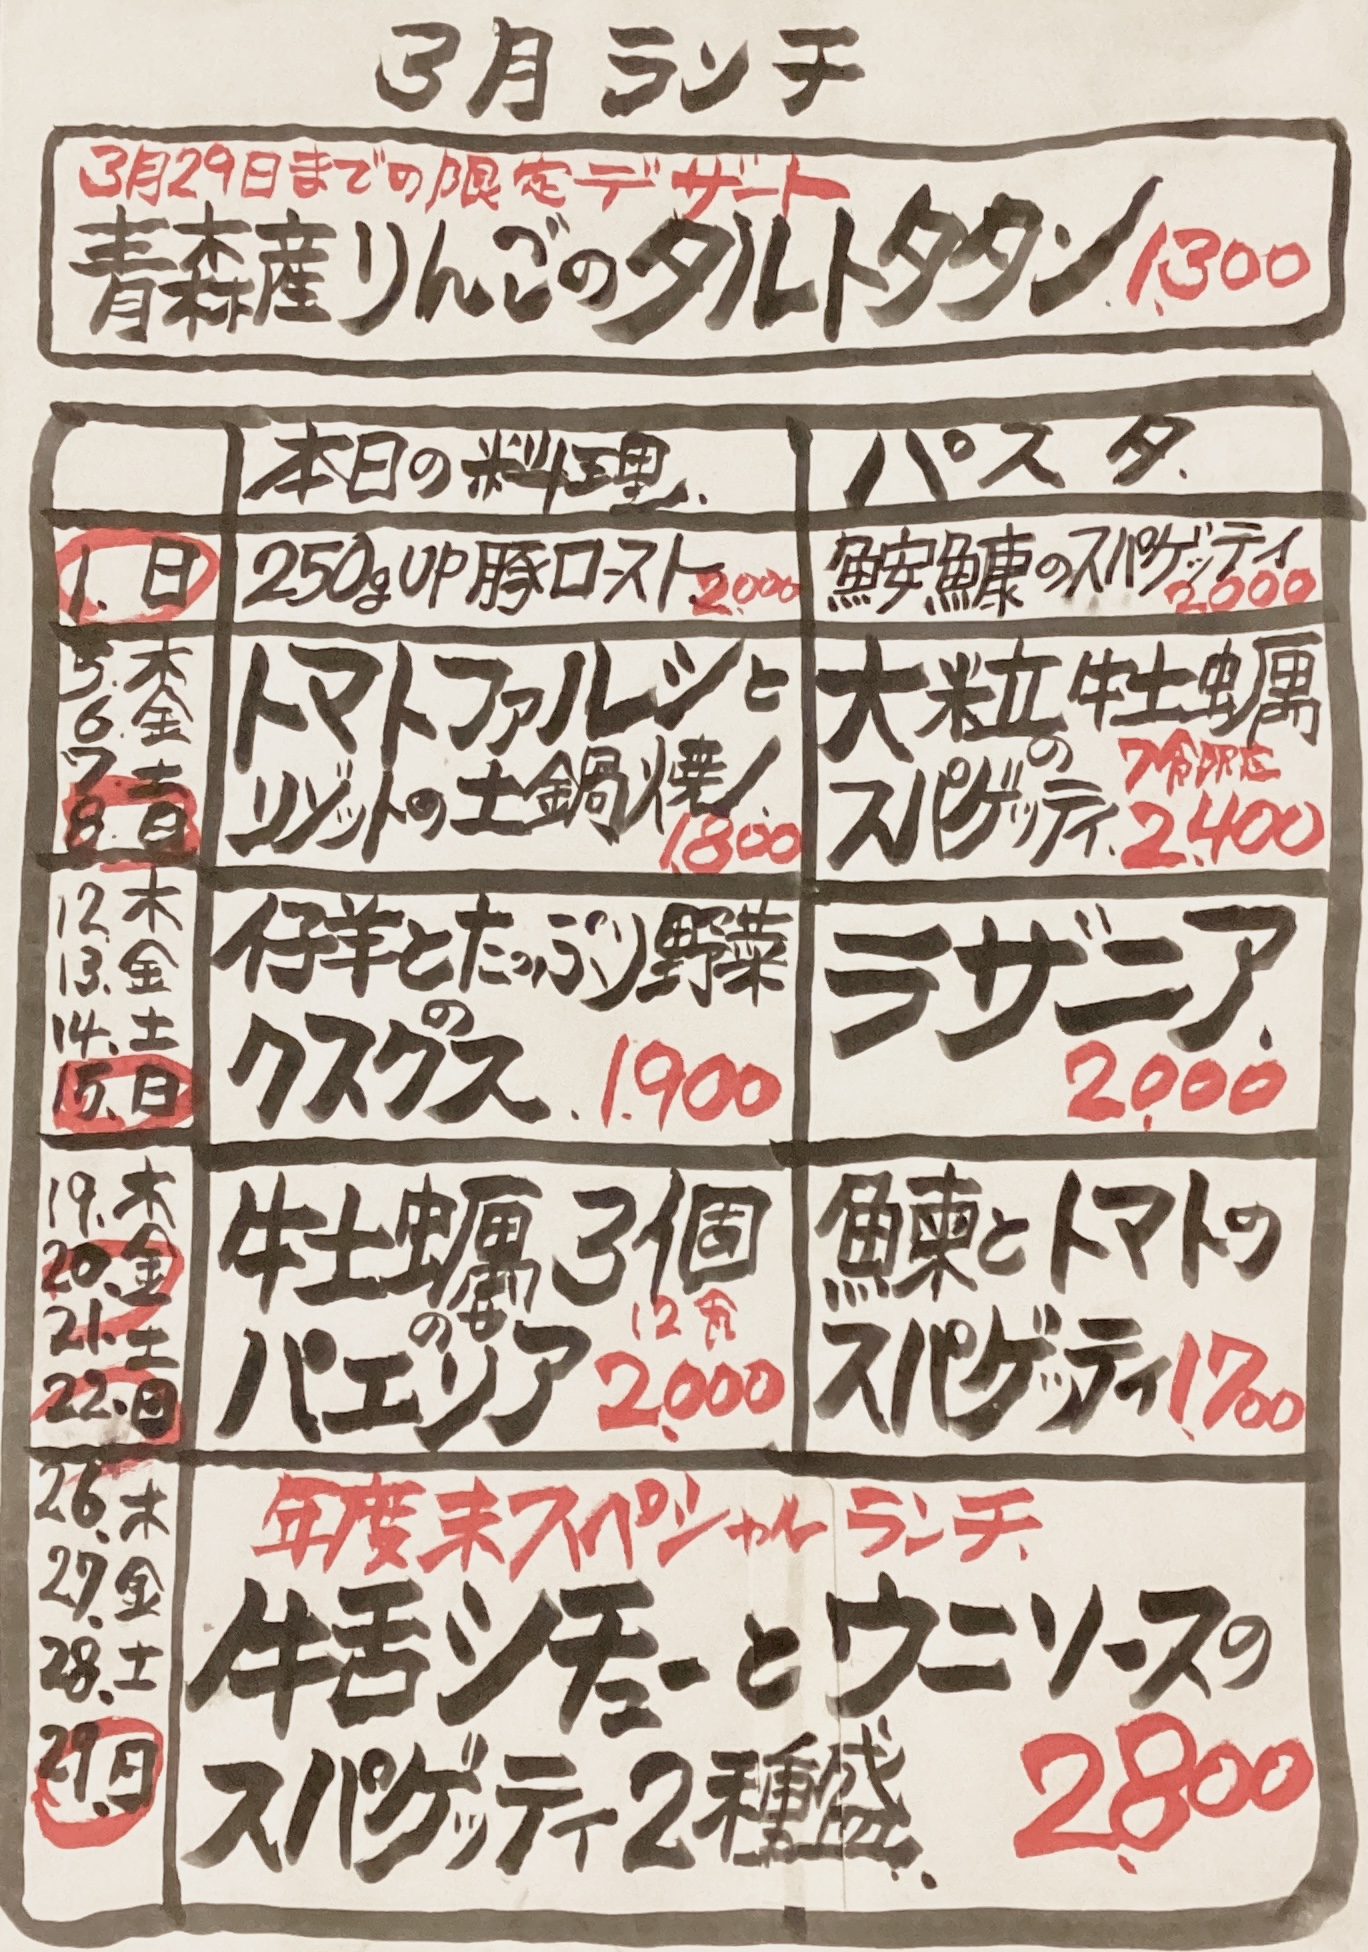 3月 ランチ
3月29日までの限定デザート
青森産りんごのタルトタタン 1,300
本日の料理
パスタ
1. 日
250gUP豚ロースト 2,000
鮟鱇のスパゲッティ
2,000
5. 木
6. 金
7. 土
8. 日
トマトファルシと
リゾットの土鍋焼ﾉ
1,800
大粒牡蠣
の
7食限定
スパゲッティ 2,400
12. 木
13. 金
14. 土
15. 日
仔羊とたっぷり野菜
の
クスクス 1,900
ラザニア
2,000
19. 木
20. 金
21. 土
22. 日
牡蠣3個
の
12食
パエリア 2,000
鰊とトマトの
スパゲッティ 1,700
26. 木
27. 金
28. 土
29. 日
年度末スペシャルランチ
牛舌シチューとウニソースの
スパゲッティ2種盛 2,800